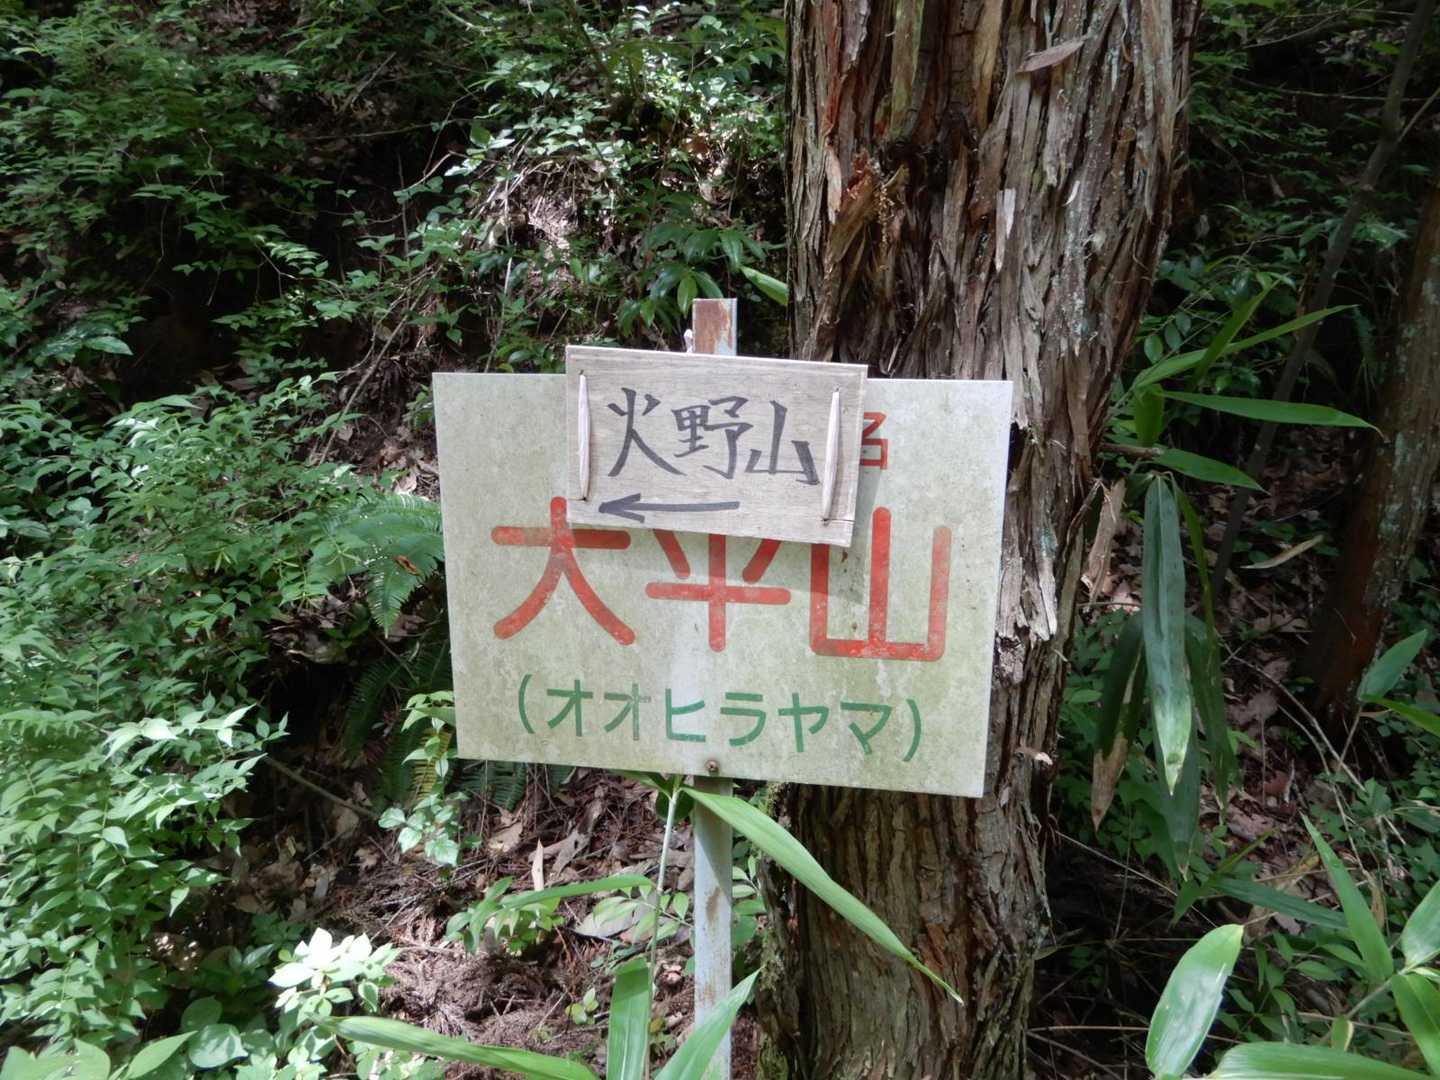 火野山
←
大平山
(オオヒラヤマ)